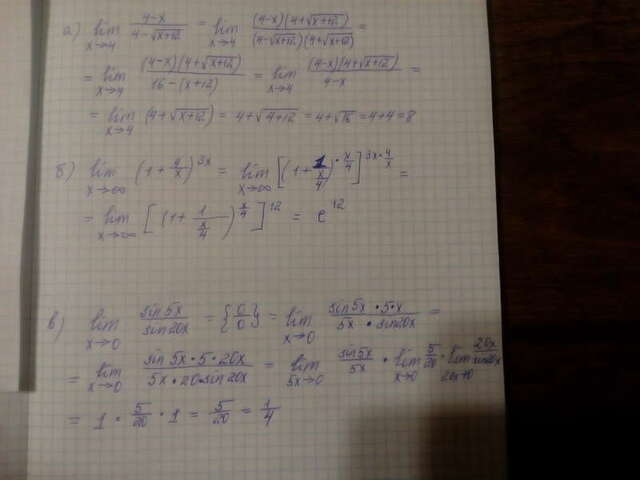 а) lim x→4 (4-x)/(4-√(x+12)) = lim x→4 ((4-x)(4+√(x+12)))/((4-√(x+12))(4+√(x+12))) =
= lim x→4 ((4-x)(4+√(x+12)))/(16-(x+12)) = lim x→4 ((4-x)(4+√(x+12)))/(4-x) =
= lim x→4 (4+√(x+12)) = 4+√(4+12) = 4+√16 = 4+4 = 8
б) lim x→∞ (1+4/x)^(3x) = lim x→∞ [(1+1/(x/4))^(x/4)]^(3x·4/x) =
= lim x→∞ [(1+1/(x/4))^(x/4)]^12 = e^12
в) lim x→0 sin5x/sin20x = {0/0} = lim x→0 (sin5x·5·x)/(5x·sin20x) =
= lim x→0 (sin5x·5·20x)/(5x·20·sin20x) = lim 5x→0 sin5x/5x · lim x→0 5/20 · lim 20x→0 20x/sin20x
= 1·5/20·1 = 5/20 = 1/4